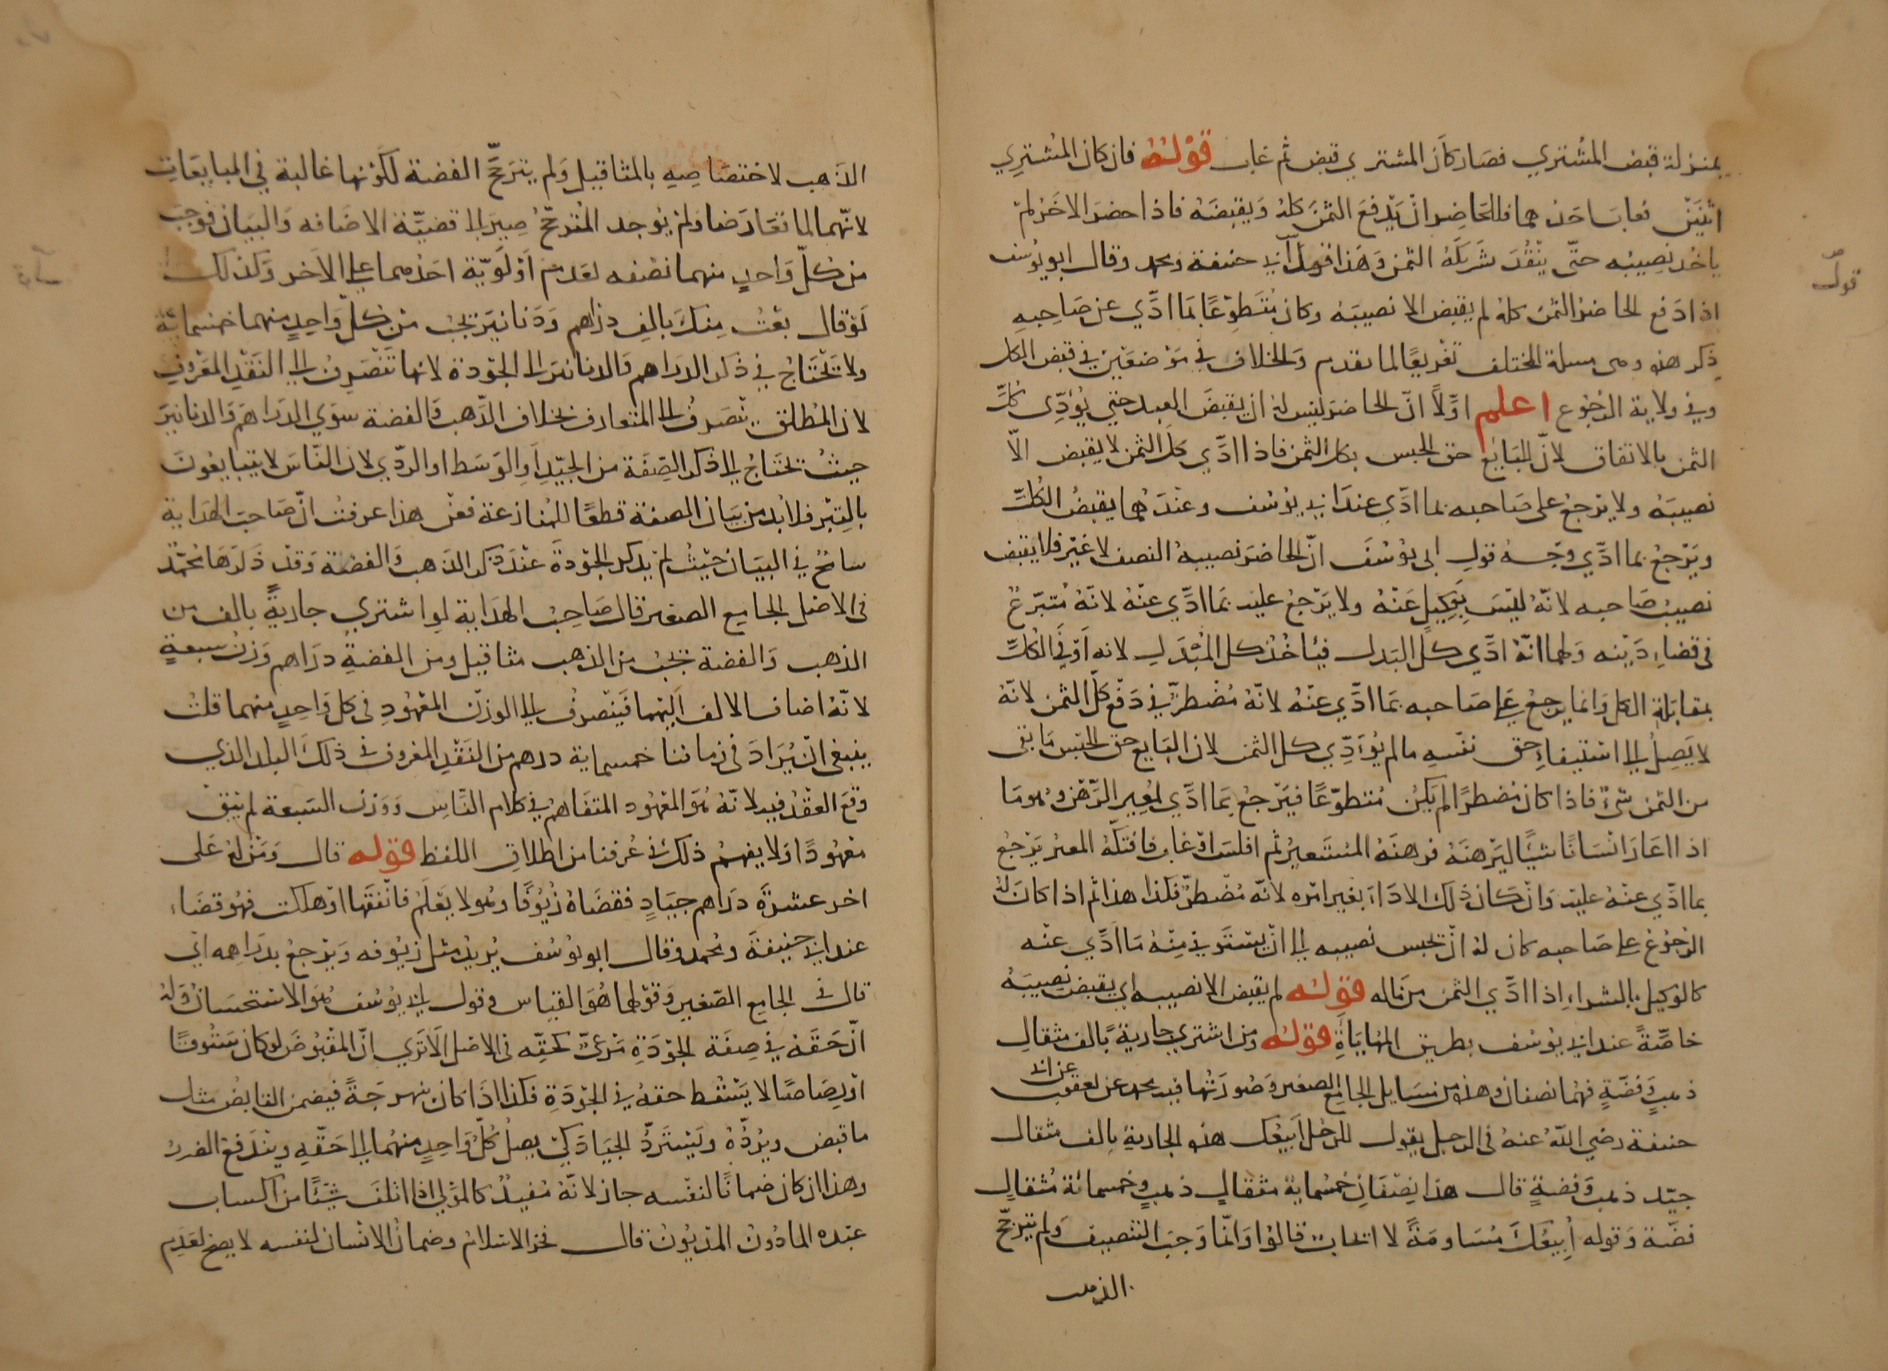 بمنزلة قبض المشتري فصار كان المشتري قبض ثم غاب قوله فان كان المشتري
اثنين فغاب احدهما فللحاضر ان يدفع الثمن كله ويقبضه فاذا حضر الاخر لم
ياخذ نصيبه حتى ينقد شريكه الثمن وهذا قول ابي حنيفة ومحمد وقال ابو يوسف
قول
اذا دفع الحاضر الثمن كله لم يقبض الا نصيبه وكان متطوعا بما ادي عن صاحبه
ذكر هذه ومن مسلة المختلف تفريعا لما تقدم والخلاف في موضعين في قبض الكل
وفي ولاية الرجوع اعلم اولا ان الحاضر ليس له ان يقبض العبد حتي يودي كل
الثمن بالاتفاق لان للبايع حق الحبس بكل الثمن فاذا ادي كل الثمن لا يقبض الا
نصيبه ولا يرجع على صاحبه بما ادي عند ابي يوسف وعندهما يقبض الكل
ويرجع بما ادي وجه قول ابي يوسف ان الحاضر نصيبه النصف لا غير فلا يقبض
نصيب صاحبه لانه ليس بوكيل عنه ولا يرجع عليه بما ادي عنه لانه متبرع
في قضاء دينه ولهما انه ادي كل البدل فياخذ كل المبدل لانه اوفي الكل
بمقابلة الكل وانما يرجع علي صاحبه بما ادي عنه لانه مضطر في دفع كل الثمن لانه
لا يصل الى استيفاء حق نفسه مالم يودي كل الثمن لان البايع حق الحبس ما بقى
من الثمن شئ فاذا كان مضطرا لم يكن متطوعا فيرجع بما ادي لمعير الرهن وهو ما
اذا اعار انسانا شيئا ليرهنه فرهنه المستعير ثم افلس او غاب فافتكه المعير يرجع
بما ادي عنه عليه وان كان ذلك الاداء بغير امره لانه مضطر فكذا هذا ثم اذا كان له
الرجوع علي صاحبه كان له ان يحبس نصيبه الى ان يستوفي منه ما ادي عنه
كالوكيل بالشراء اذا ادي الثمن من ماله قوله لم يقبض الا نصيبه اي يقبض نصيبه
خاصة عند ابي يوسف بطريق المهاياة قوله ومن اشتري جارية بالف مثقال
ذهب وفضة فهما نصفان وهذه من مسايل الجامع الصغير وصورتها فيه محمد عن يعقوب عن ابي
حنيفة رضي الله عنه في الرجل يقول للرجل ابيعك هذه الجارية بالف مثقال
جيد ذهب وفضة قال هذا نصفان خمسماية مثقال ذهب وخمسمائة مثقال
فضة وقوله ابيعك مساومة لا ايجاب قالوا وانما وجب التنصيف ولم يترجح
الذهب
الذهب لاختصاصه بالمثاقيل ولم يترجح الفضة لكونها غالبة في المبايعات
لانهما لما تعارضا ولم يوجد المترجح صير الى قضية الاضافه والبيان فوجب
من كل واحد منهما نصفه لعدم اولوية احدهما على الاخر وكذلك
لو قال بعت منك بالف دراهم ودنانير يجب من كل واحد منهما خمسمائة
ولا يحتاج في ذكر الدراهم والدنانير الى الجودة لانها تنصرف الى النقد المعروف
لان المطلق ينصرف الى المتعارف بخلاف الذهب والفضة سوي الدراهم والدنانير
حيث يحتاج الى ذكر الصفة من الجيد او الوسط او الردي لان الناس لا يتبايعون
بالتبر فلا بد من بيان الصفة قطعا للمنازعة فعن هذا عرفت ان صاحب الهداية
سامح في البيان حيث لم يذكر الجودة عند ذكر الذهب والفضة وقد ذكرها محمد
في الاصل الجامع الصغير قال صاحب الهداية لو اشتري جارية بالف من
الذهب والفضة يجب من الذهب مثاقيل ومن الفضة دراهم وزن سبعة
لانه اضاف الالف اليهما فينصرف الى الوزن المعهود في كل واحد منهما قلت
ينبغي ان يراد في زماننا خمسماية درهم من النقد المعروف في ذلك البلد الذي
وقع العقد فيه لانه هو المعهود المتفاهم في كلام الناس ووزن السبعة لم يبق
معهودا ولا يفهم ذلك في عرفنا من اطلاق اللفظ قوله قال ومن له على
اخر عشرة دراهم جياد فقضاه زيوفا وهو لا يعلم فانفقها او هلكت فهو قضاء
عند ابي حنيفة ومحمد وقال ابو يوسف يريد مثل زيوفه ويرجع بدراهمه اي
قال في الجامع الصغير وقولهما هو القياس وقول ابي يوسف هو الاستحسان وله
ان حقه في صفة الجودة مرعي كحقه في الاصل الا تري ان المقبوض لو كان ستوقا
او رصاصا لا يسقط حقه في الجودة فكذا اذا كان نبهرجة فيضمن القابض مثل
ما قبض ويرده ويسترد الجياد كي يصل كل واحد منهما الى حقه ويندفع الضرر
وهذا ان كان ضمانا لنفسه جاز لانه مفيد كالمولي اذا اتلف شيئا من اكساب
عبده الماذون المديون قال فخر الاسلام وضمان الانسان لنفسه لا يصح لعدم